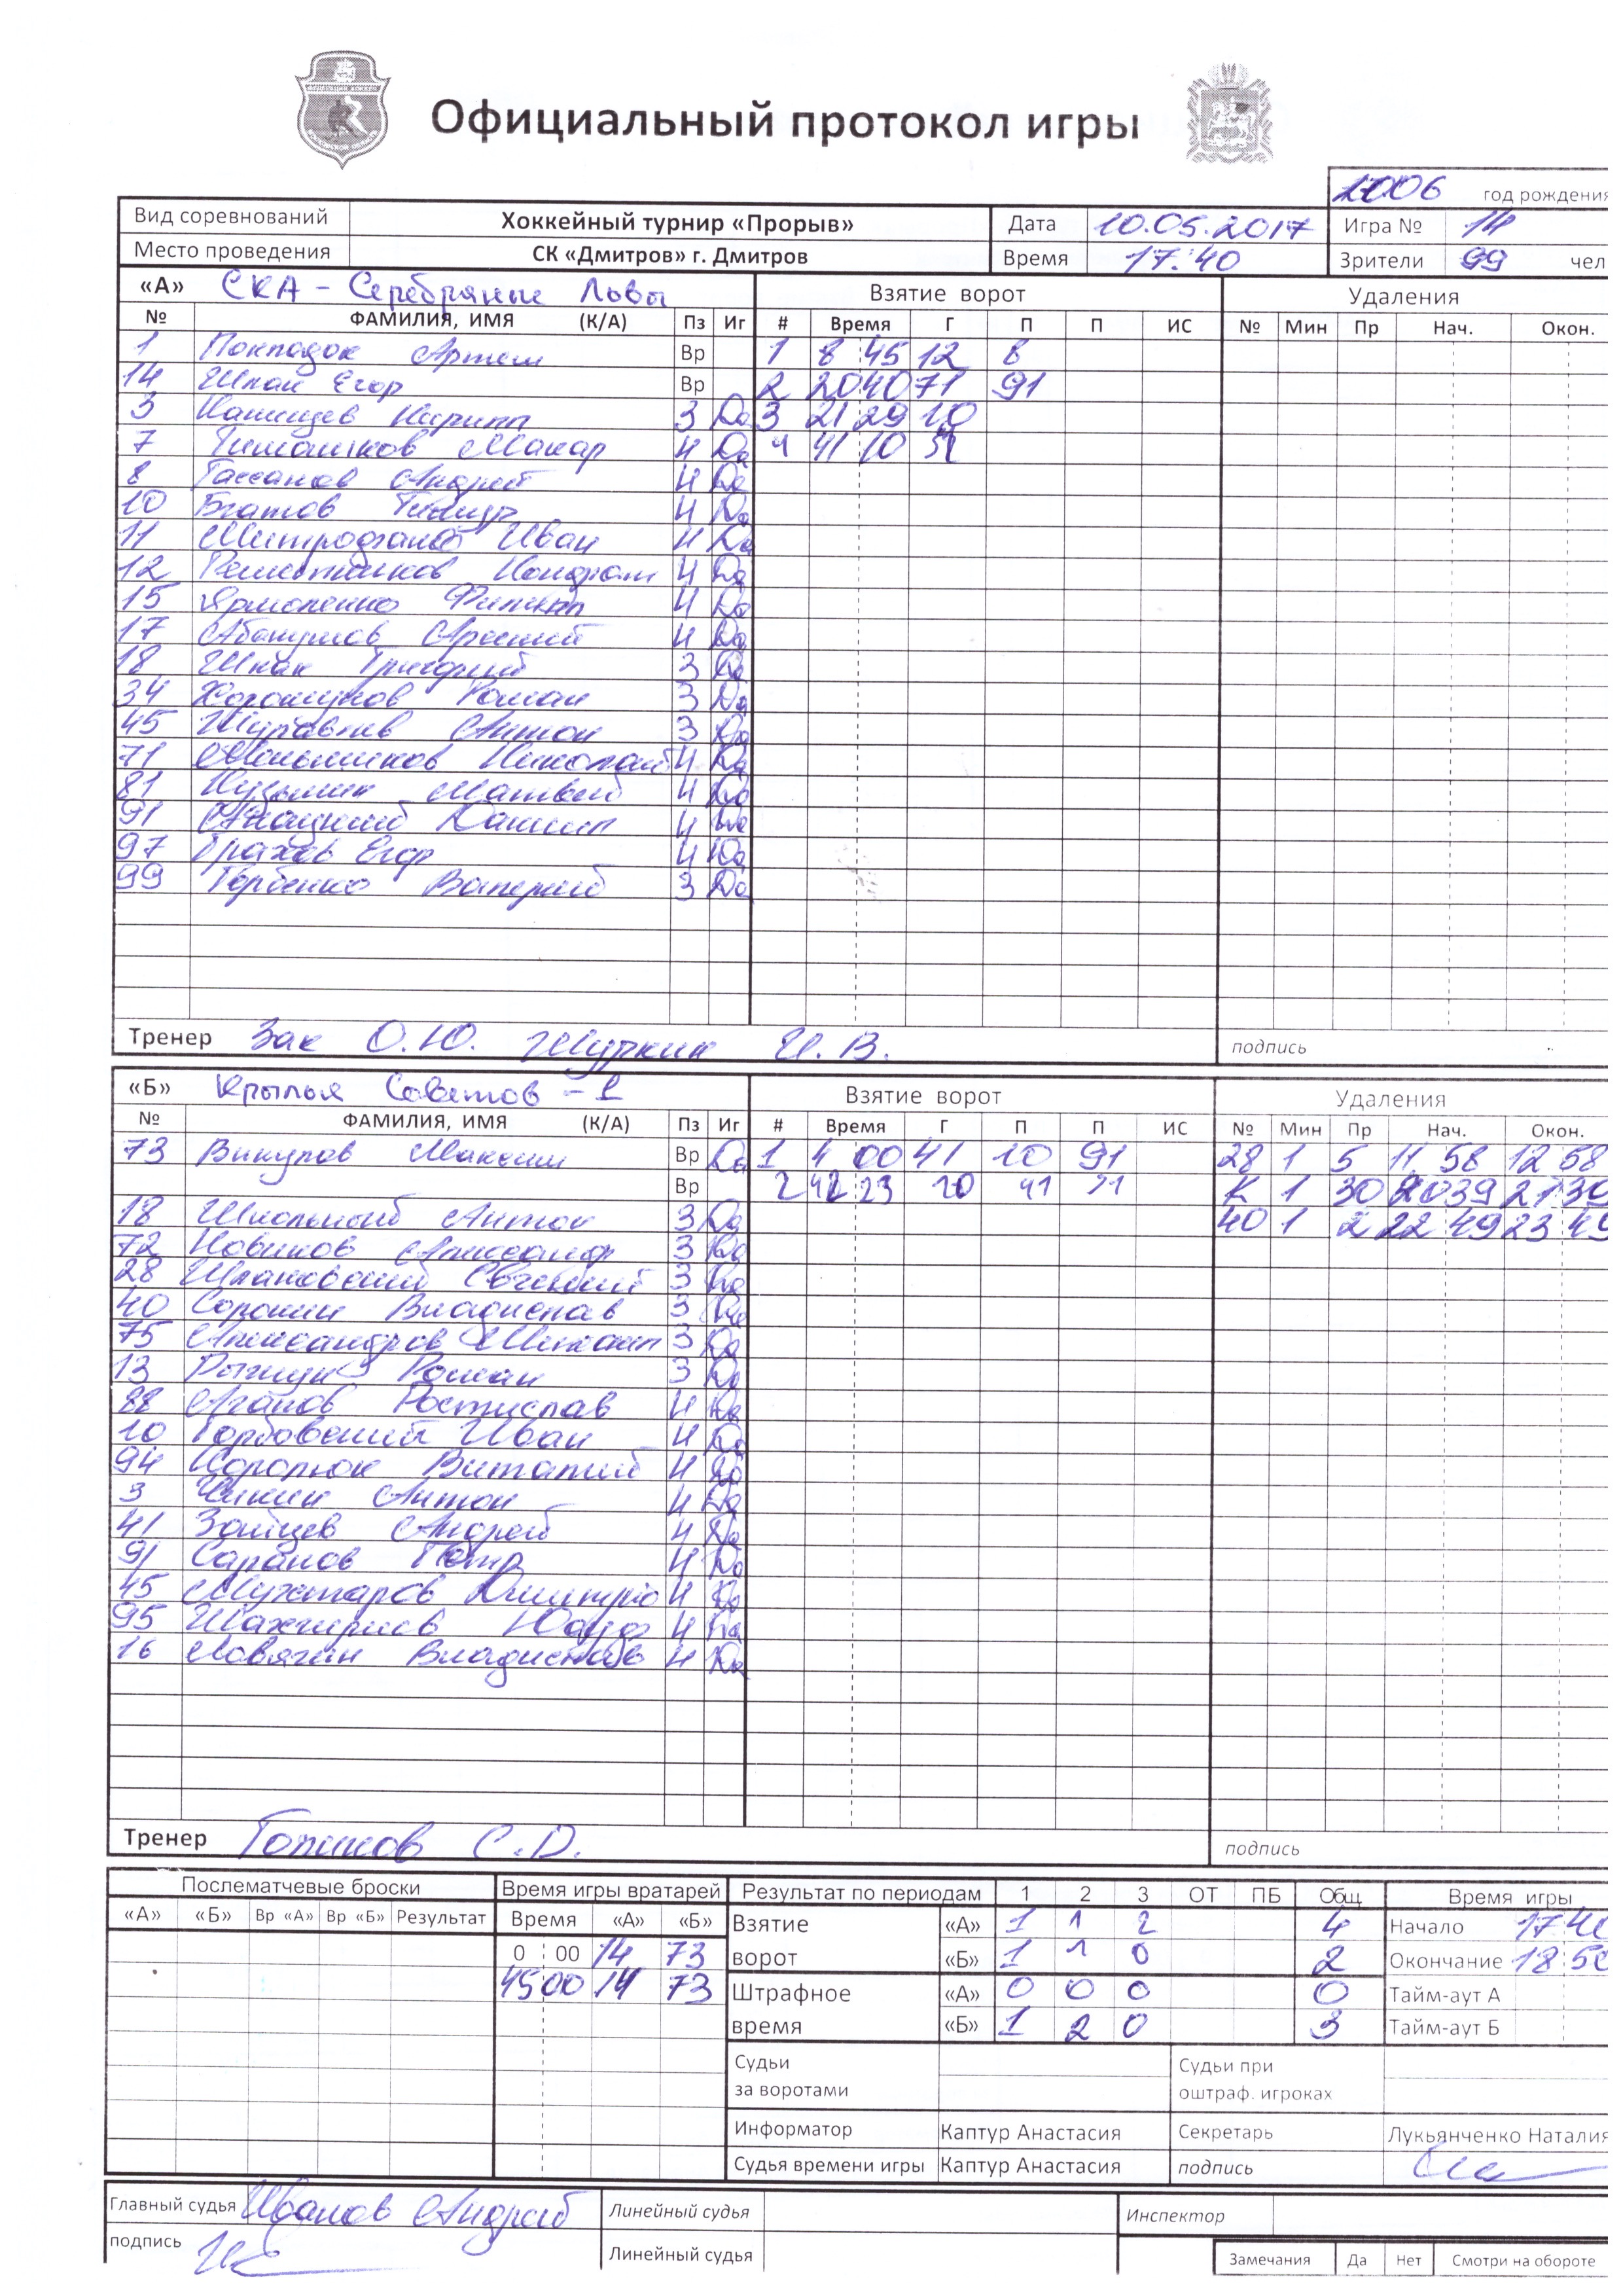 Официальный протокол игры
2006 год рождения
Вид соревнований Хоккейный турнир «Прорыв» Дата 10.05.2017 Игра № 14
Место проведения СК «Дмитров» г. Дмитров Время 17:40 Зрители 99 чел
«А» СКА - Серебряные Львы Взятие ворот Удаления
№ ФАМИЛИЯ, ИМЯ (К/А) Пз Иг # Время Г П П ИС № Мин Пр Нач. Окон.
1 Артем Вр 1 8 45 12 8
14 Шпак Егор Вр 2 20 40 71 91
3 Кирилл 3 Да 3 21 29 10
7 Тимашков Макар Н Да 4 41 10
8 Гассанов Андрей Н Да
10 Тимур Н Да
11 Митрофанов Иван Н Да
12 Решетников Кондрат Н Да
15 Ярмоленко Филипп Н Да
17 Арсений Н Да
18 Шпак Григорий 3 Да
34 Хорошунов Роман 3 Да
45 Журавлев Антон 3 Да
71 Мельников Николай Н Да
81 Кузьмин Матвей Н Да
91 Даниил Н Да
97 Грахов Егор Н Да
99 Горбенко Валерий 3 Да
Тренер Зак О.Ю. Журкин И.В. подпись
«Б» Крылья Советов - 1 Взятие ворот Удаления
№ ФАМИЛИЯ, ИМЯ (К/А) Пз Иг # Время Г П П ИС № Мин Пр Нач. Окон.
73 Винуров Максим Вр Да 1 4 00 41 10 91 28 1 5 11 58 12 58
Вр 2 42 23 10 41 К 1 30 20 39 21 39
18 Школьный Антон 3 Да 40 1 2 22 49 23 49
72 Новиков Александр 3 Да
28 Шпаковский Евгений 3 Да
40 Сорокин Владислав 3 Да
75 Александров Михаил 3 Да
13 Роман 3 Да
88 Агапов Ростислав Н Да
10 Горбовский Иван Н Да
94 Королюк Виталий Н Да
3 Чикин Антон Н Да
41 Зайцев Андрей Н Да
91 Саранов Петр Н Да
45 Мухтаров Дмитрий Н Да
95 Шахгириев Юсуф Н Да
16 Ловягин Владислав Н Да
Тренер Голиков С.D. подпись
Послематчевые броски Время игры вратарей Результат по периодам 1 2 3 ОТ ПБ Общ Время игры
«А» «Б» Вр «А» Вр «Б» Результат Время «А» «Б» Взятие «А» 1 1 2 4 Начало 17 40
0 00 14 73 ворот «Б» 1 1 0 2 Окончание 18 50
45 00 14 73 Штрафное «А» 0 0 0 0 Тайм-аут А
время «Б» 1 2 0 3 Тайм-аут Б
Судьи Судьи при
за воротами оштраф. игроках
Информатор Каптур Анастасия Секретарь Лукьянченко Наталия
Судья времени игры Каптур Анастасия подпись
Главный судья Иванов Андрей Линейный судья Инспектор
подпись Линейный судья Замечания Да Нет Смотри на обороте